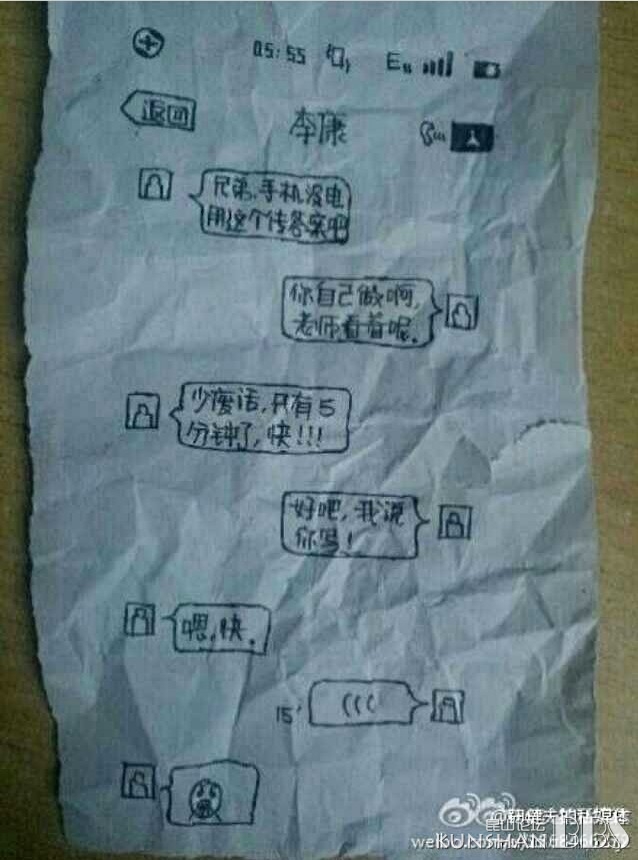 05:55 E
返回 李康
兄弟,手机没电
用这个传答案吧
你自己做啊,
老师看着呢.
少废话,只有5
分钟了,快!!!
好吧,我说
你写!
嗯,快.
15" (((